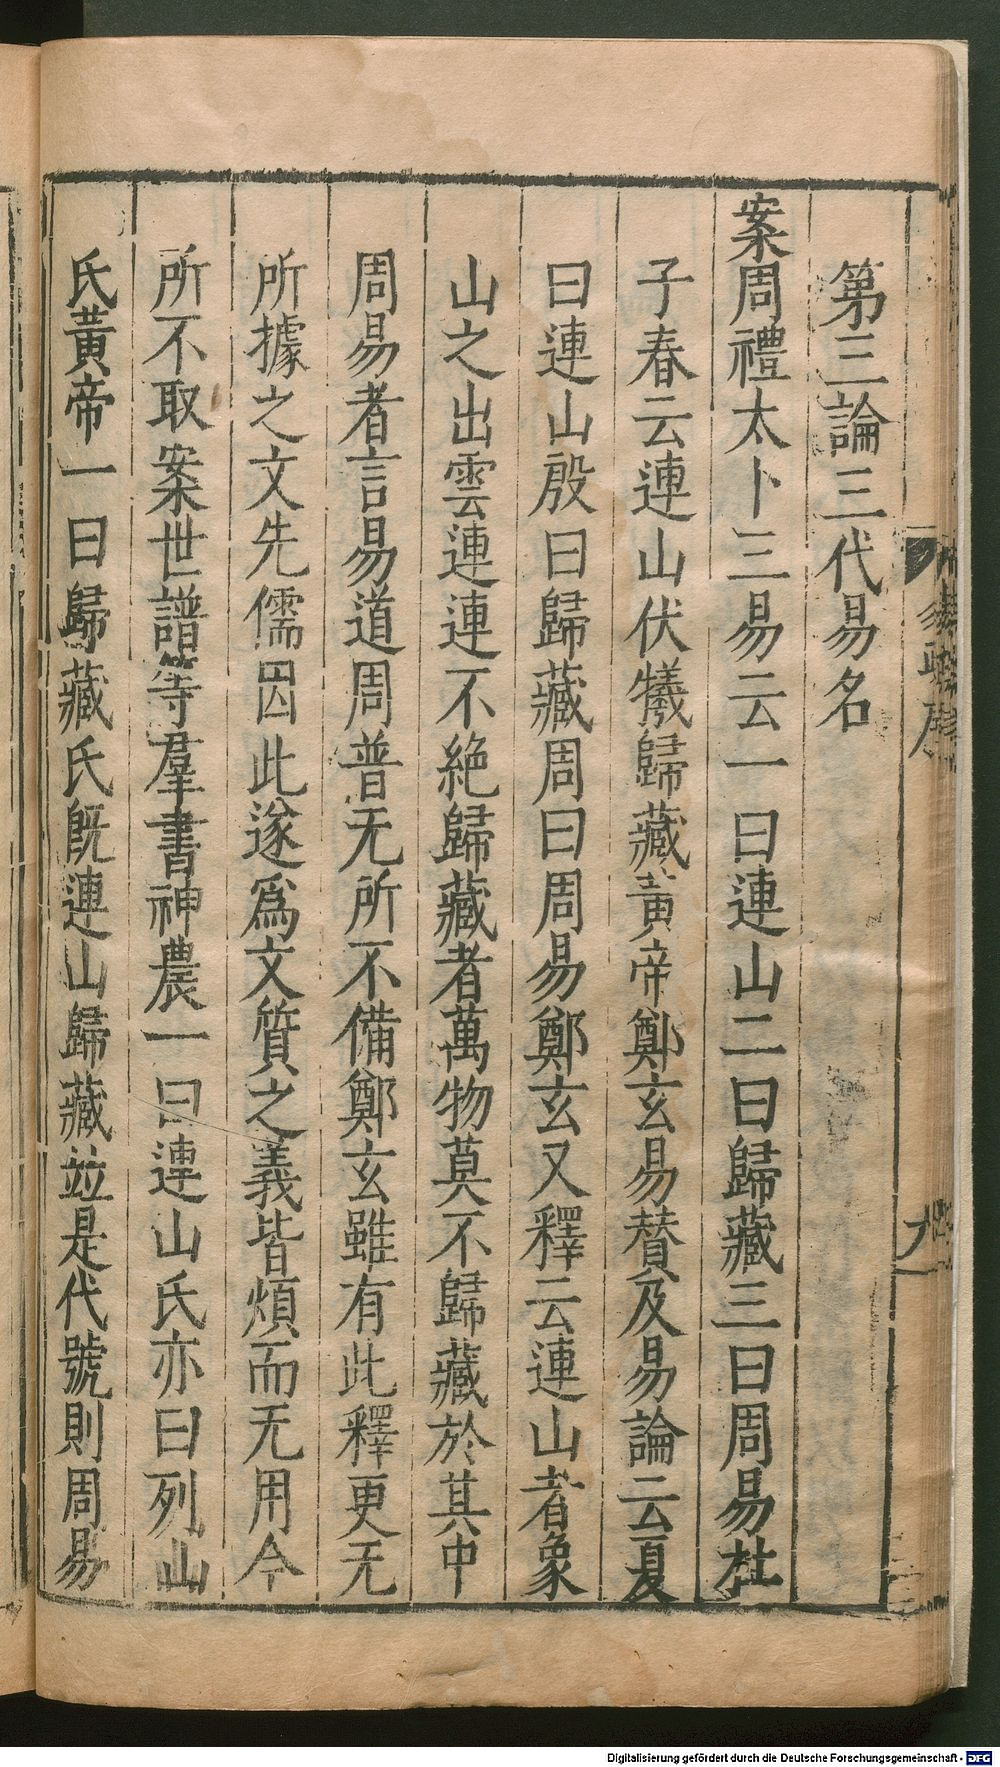 第三論三代易名
案周禮太卜三易云一曰連山二曰歸藏三曰周易杜
子春云連山伏犧歸藏黃帝鄭玄易賛及易論云夏
曰連山殷曰歸藏周曰周易鄭玄又釋云連山者象
山之出雲連連不絶歸藏者萬物莫不歸藏於其中
周易者言易道周普无所不備鄭玄雖有此釋更无
所據之文先儒因此遂爲文質之義皆煩而无用今
所不取案世譜等羣書神農一曰連山氏亦曰列山
氏黃帝一曰歸藏氏旣連山歸藏並是代號則周易
Digitalisierung gefördert durch die Deutsche Forschungsgemeinschaft - DFG